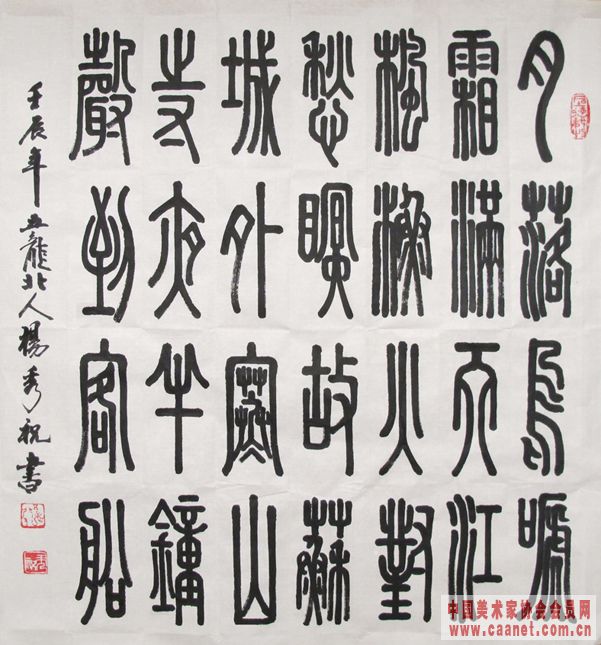 月落烏嗁
霜滿天江
楓漁火對
愁瞑故蘇
城外寒山
寺夜半鐘
聲到客船
壬辰年五龍北人楊秀祝書
中国美术家协会会员网
www.caanet.com.cn